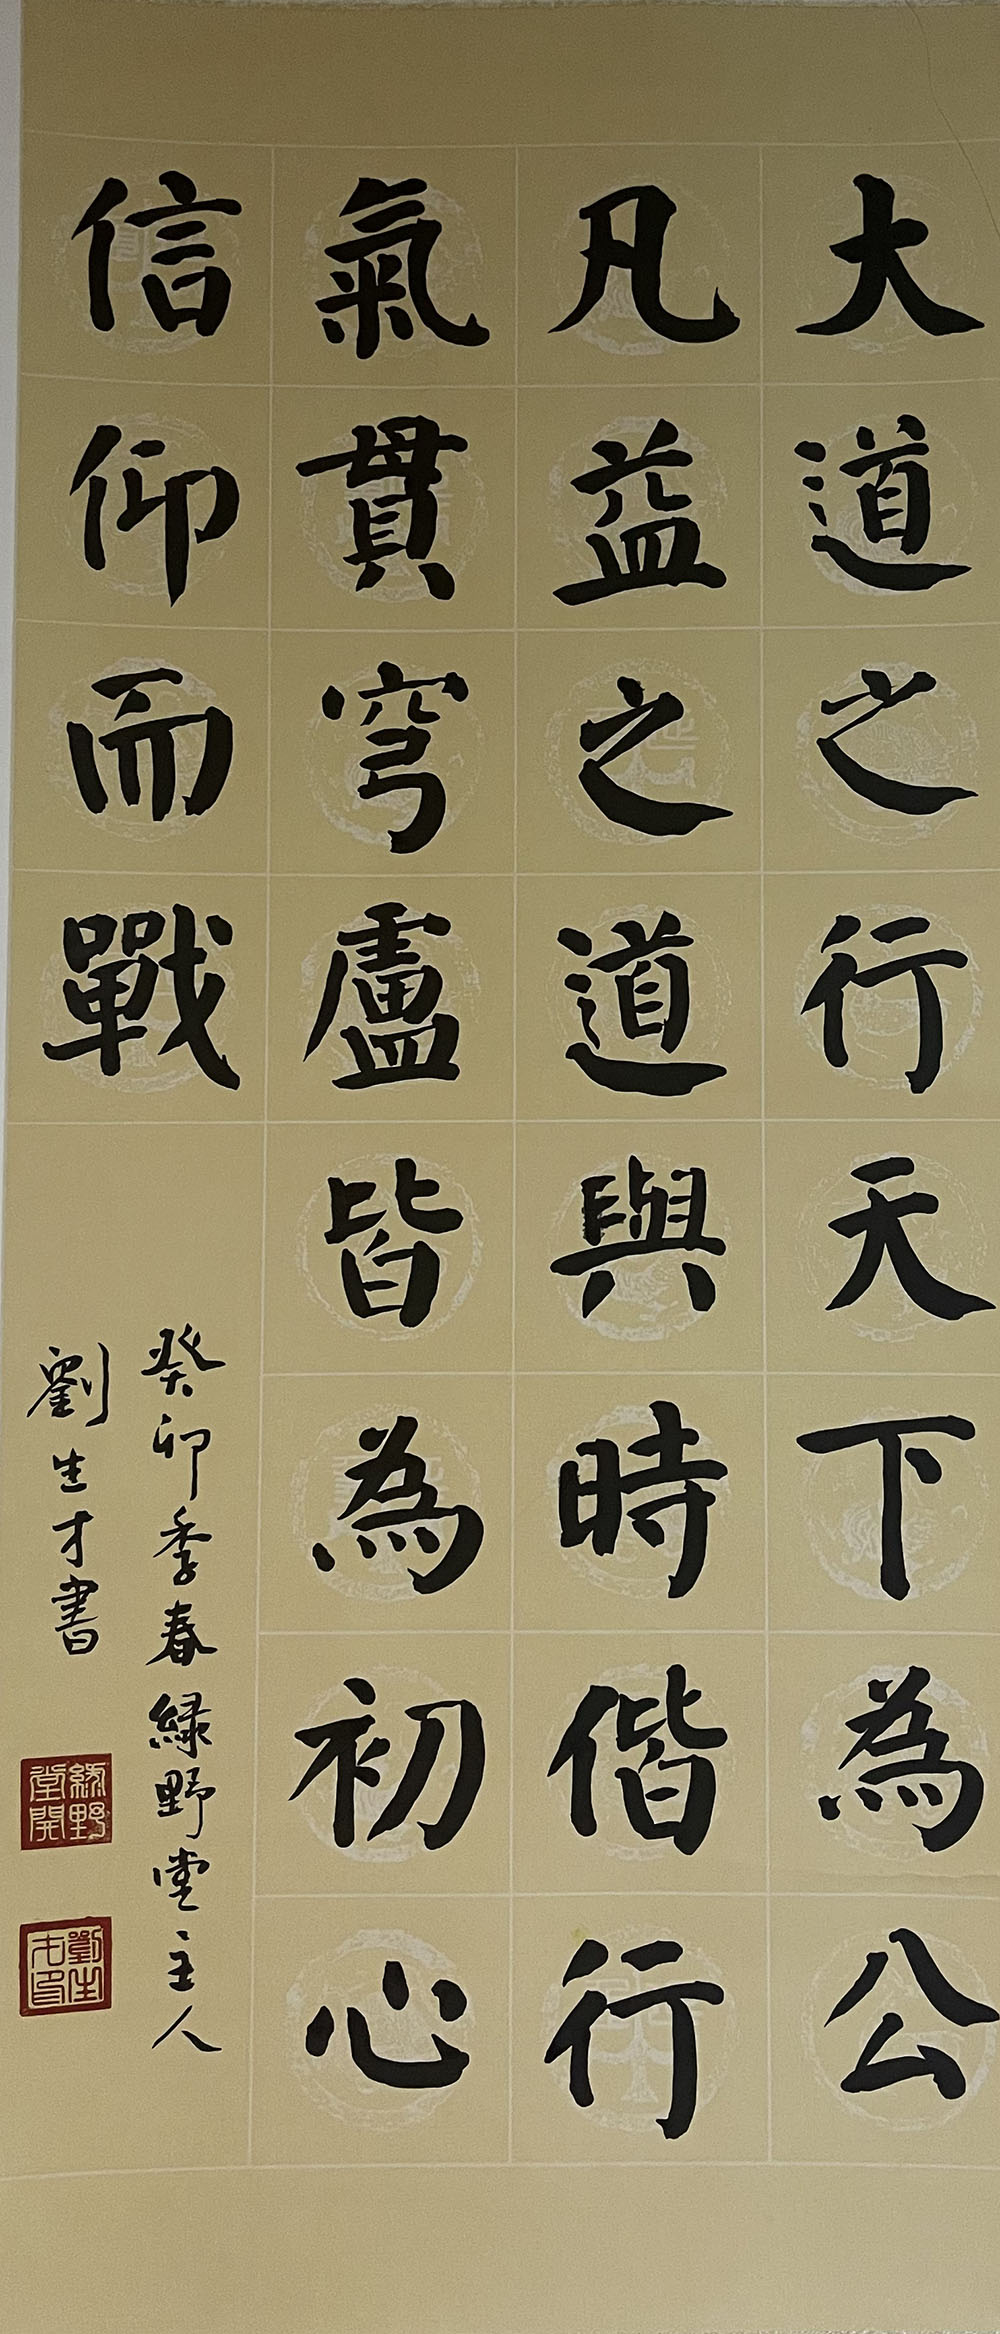 大道之行天下為公
凡益之道與時偕行
氣貫穹廬皆為初心
信仰而戰
癸卯季春緑野堂主人
劉生才書
緑野堂開
劉生才印